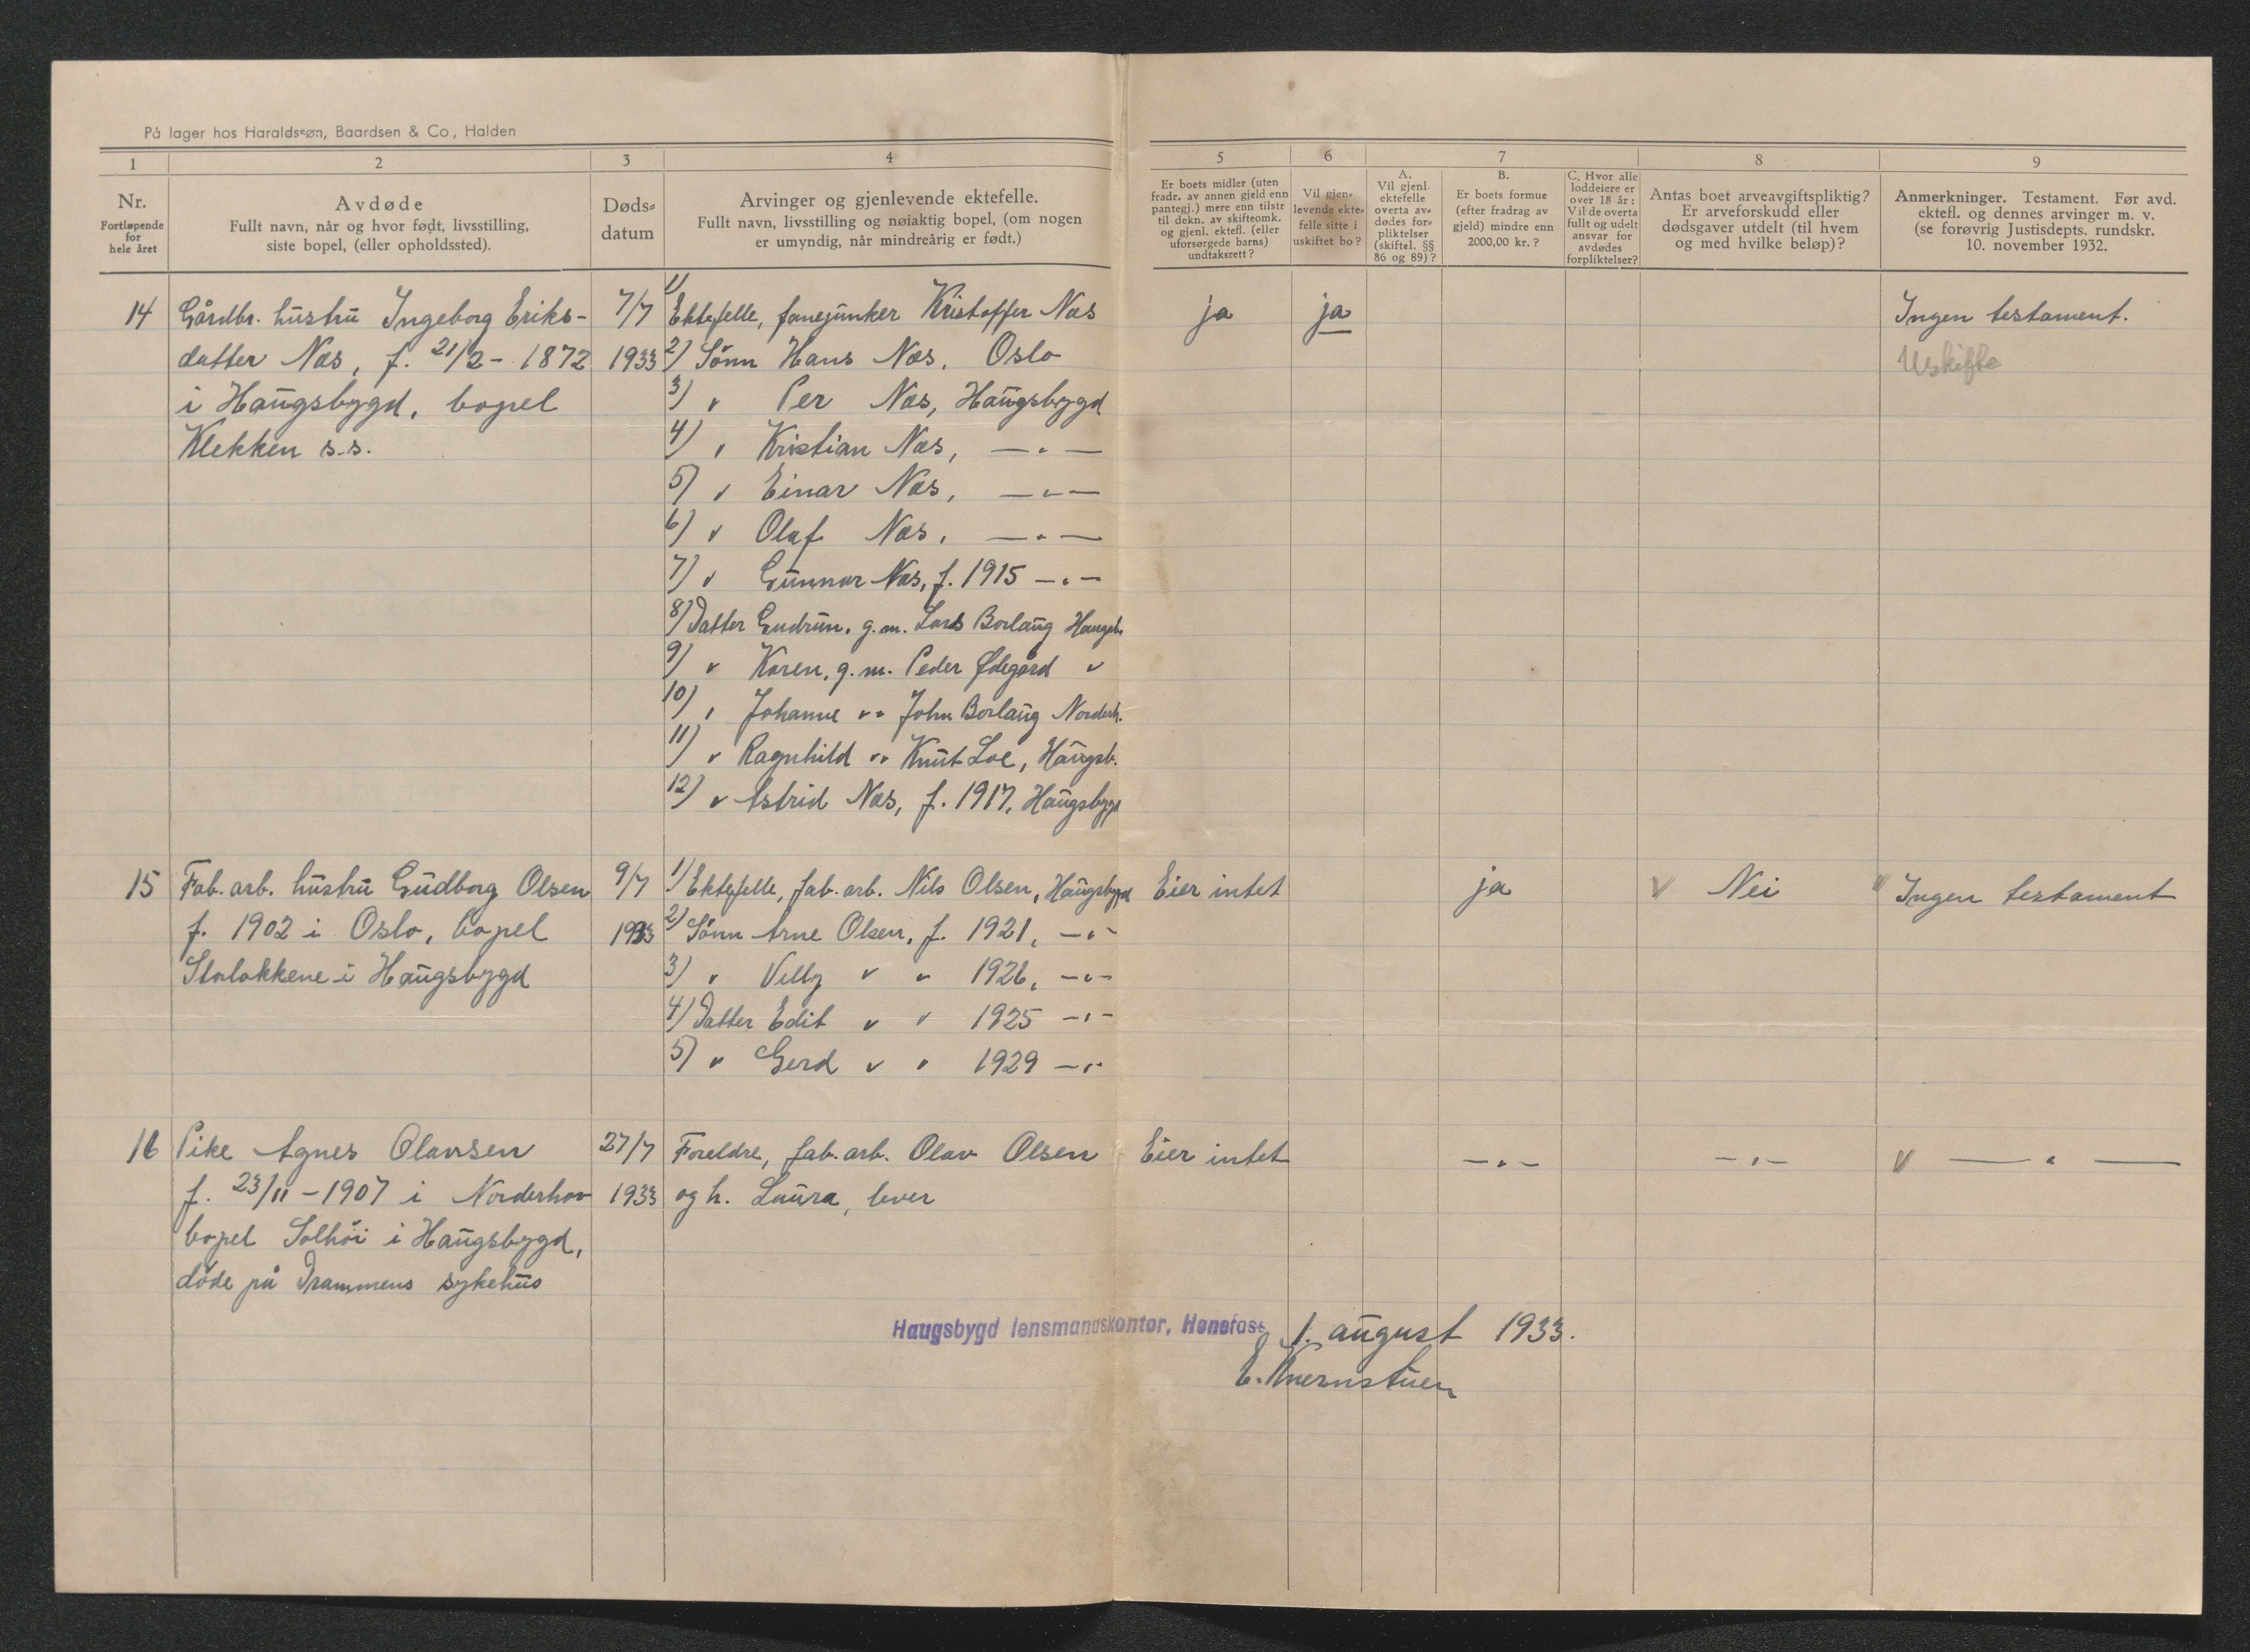 På lager hos Haraldssøn, Baardsen & Co, Halden
1 2 3 4 5 6 7 8 9
Nr.
Fortløpende
for
hele året
Avdøde
Fullt navn, når og hvor født, livsstilling,
siste bopel, (eller opholdssted).
Døds-
datum
Arvinger og gjenlevende ektefelle.
Fullt navn, livsstilling og nøiaktig bopel, (om nogen
er umyndig, når mindreårig er født.)
Er boets midler (uten
fradr. av annen gjeld enn
pantegj.) mere enn tilstr
til dekn. av skifteomk.
og gjenl. ektefl. (eller
uforsørgede barns)
undtaksrett?
Vil gjen-
levende ekte-
felle sitte i
uskiftet bo?
A.
Vil gjenl.
ektefelle
overta av-
dødes for-
pliktelser
(skiftel. §§
86 og 89)?
B.
Er boets formue
(efter fradrag av
gjeld) mindre enn
2000,00 kr.?
C. Hvor alle
loddeiere er
over 18 år:
Vil de overta
fullt og udelt
ansvar for
avdødes
forpliktelser?
Antas boet arveavgiftspliktig?
Er arveforskudd eller
dødsgaver utdelt (til hvem
og med hvilke beløp)?
Anmerkninger. Testament. Før avd.
ektefl. og dennes arvinger m. v.
(se forøvrig Justisdepts. rundskr.
10. november 1932.
14 Gårdbr. hustru Ingeborg Eriks-
datter Næs, f. 21/2 - 1872
i Haugsbygd, bopel
Klekken s.s.
7/7
1933
1) Ektefelle, fanejunker Kristoffer Næs
2) Sønn Hans Næs, Oslo
3) " Per Næs, Haugsbygd
4) " Kristian Næs, — " —
5) " Einar Næs, — " —
6) " Olaf Næs, — " —
7) " Gunnar Næs, f. 1915 — " —
8) Datter Gudrun, g.m. Lars Borlaug Haugsb.
9) " Karen, g.m. Peder Ødegård "
10) " Johanne " " John Borlaug Norderh.
11) " Ragnhild " " Knut Loe, Haugsb.
12) " Astrid Næs, f. 1917, Haugsbygd
ja ja
Ingen testament.
Uskifte
15 Fab. arb. hustru Gudborg Olsen
f. 1902 i Oslo, bopel
Stalokkene i Haugsbygd
9/7
1933
1) Ektefelle, fab. arb. Nils Olsen, Haugsbygd
2) Sønn Arne Olsen, f. 1921, — " —
3) " Villy " " 1926, — " —
4) Datter Edit " " 1925 — " —
5) " Gerd " " 1929 — " —
Eier intet ja V Nei " Ingen testament
16 Pike Agnes Olavsen
f. 23/11 - 1907 i Norderhov
bopel Solhöi i Haugsbygd,
døde på Drammens sykehus
27/7
1933
Foreldre, fab. arb. Olav Olsen
og h. Laura, lever
Eier intet — " — — " — V — " —
Haugsbygd lensmandskontor, Hønefoss 1. august 1933.
E. Kvernstuen